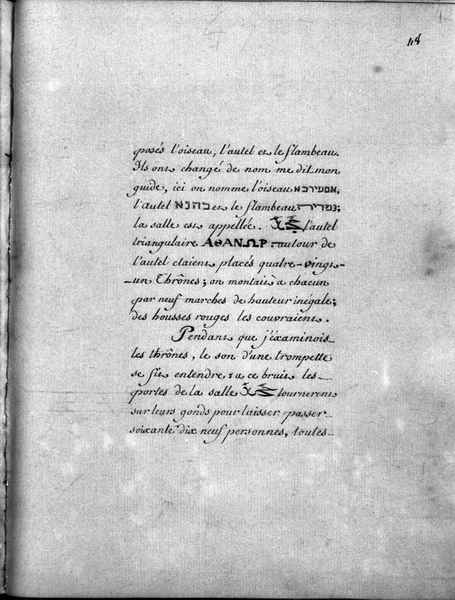 48
posés l'oiseau, l'autel et le flambeau.
Ils ont changé de nom me dit mon
guide, ici on nomme l'oiseau
l'autel כהנא et le flambeau
la salle est appellée. l'autel
triangulaire ΑΘΑΝΩΡ autour de
l'autel etaient placés quatre-vingt-
-un Thrônes; on montait a chacun
par neuf marches de hauteur inégale;
des housses rouges les couvraient.
Pendant que j'éxaminois
les thrônes, le son d'une trompette
se fit entendre; a ce bruit les
portes de la salle tournerent
sur leurs gonds pour laisser passer
soixante dix neuf personnes, toutes-